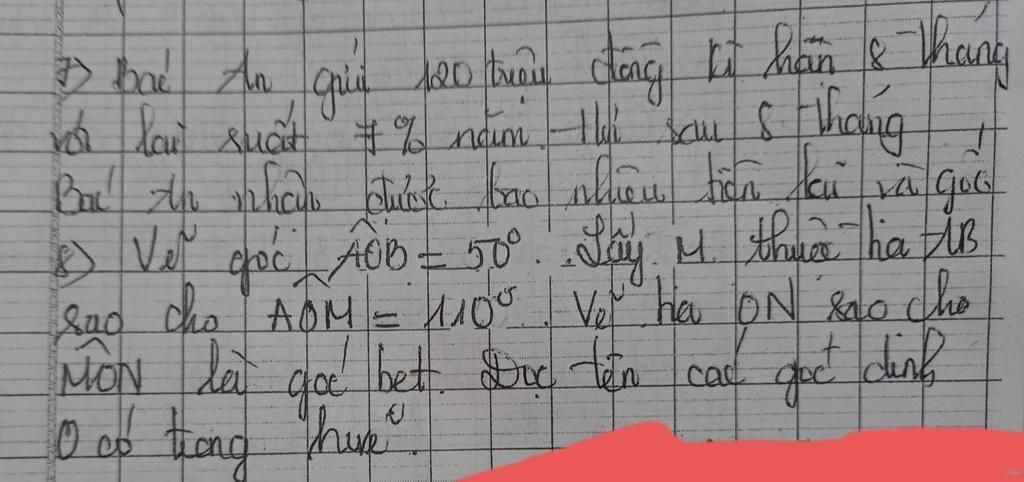 7) Bác An gửi 120 triệu đồng kì hạn 8 tháng
với lãi suất 7% năm. Thì sau 8 tháng
Bác An nhận được bao nhiêu tiền lãi và gốc
8) Vẽ góc AOB = 50°. Lấy M thuộc tia AB
sao cho AOM = 110°. Vẽ tia ON sao cho
MON là góc bẹt. Đọc tên các góc đỉnh
O có trong hình.